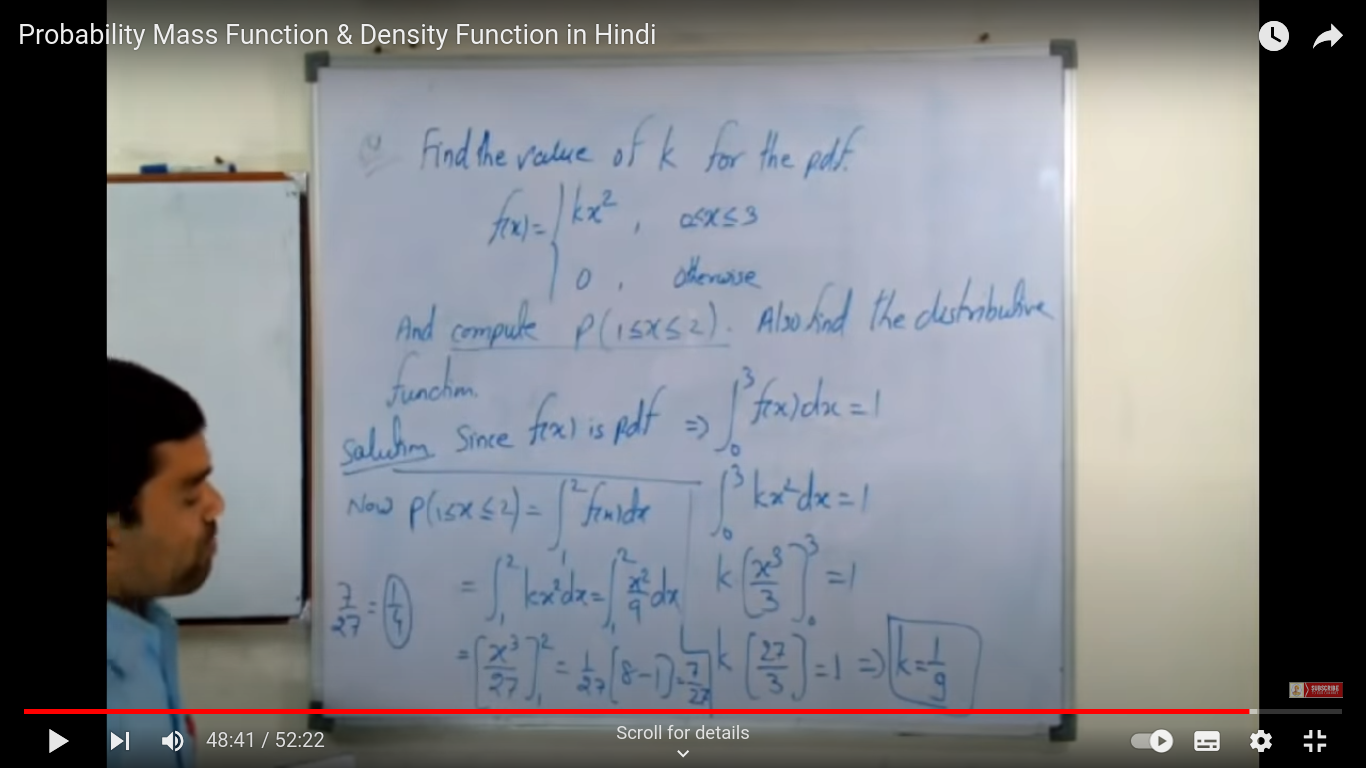 Probability Mass Function & Density Function in Hindi
Find the value of k for the pdf.
f(x)= { kx², 0≤x≤3
0, otherwise
And compute P(1≤x≤2). Also find the distributive
function.
Solution Since f(x) is pdf ⇒ ∫₀³ f(x)dx = 1
Now P(1≤x≤2) = ∫₁² f(x)dx
∫₀³ kx²dx = 1
= ∫₁² kx²dx = ∫₁² x²/9 dx
k [x³/3]₀³ = 1
7/27 = 1/4
= [x³/27]₁² = 1/27 [8-1] = 7/27
k [27/3] = 1 ⇒ k = 1/9
SUBSCRIBE
48:41 / 52:22
Scroll for details